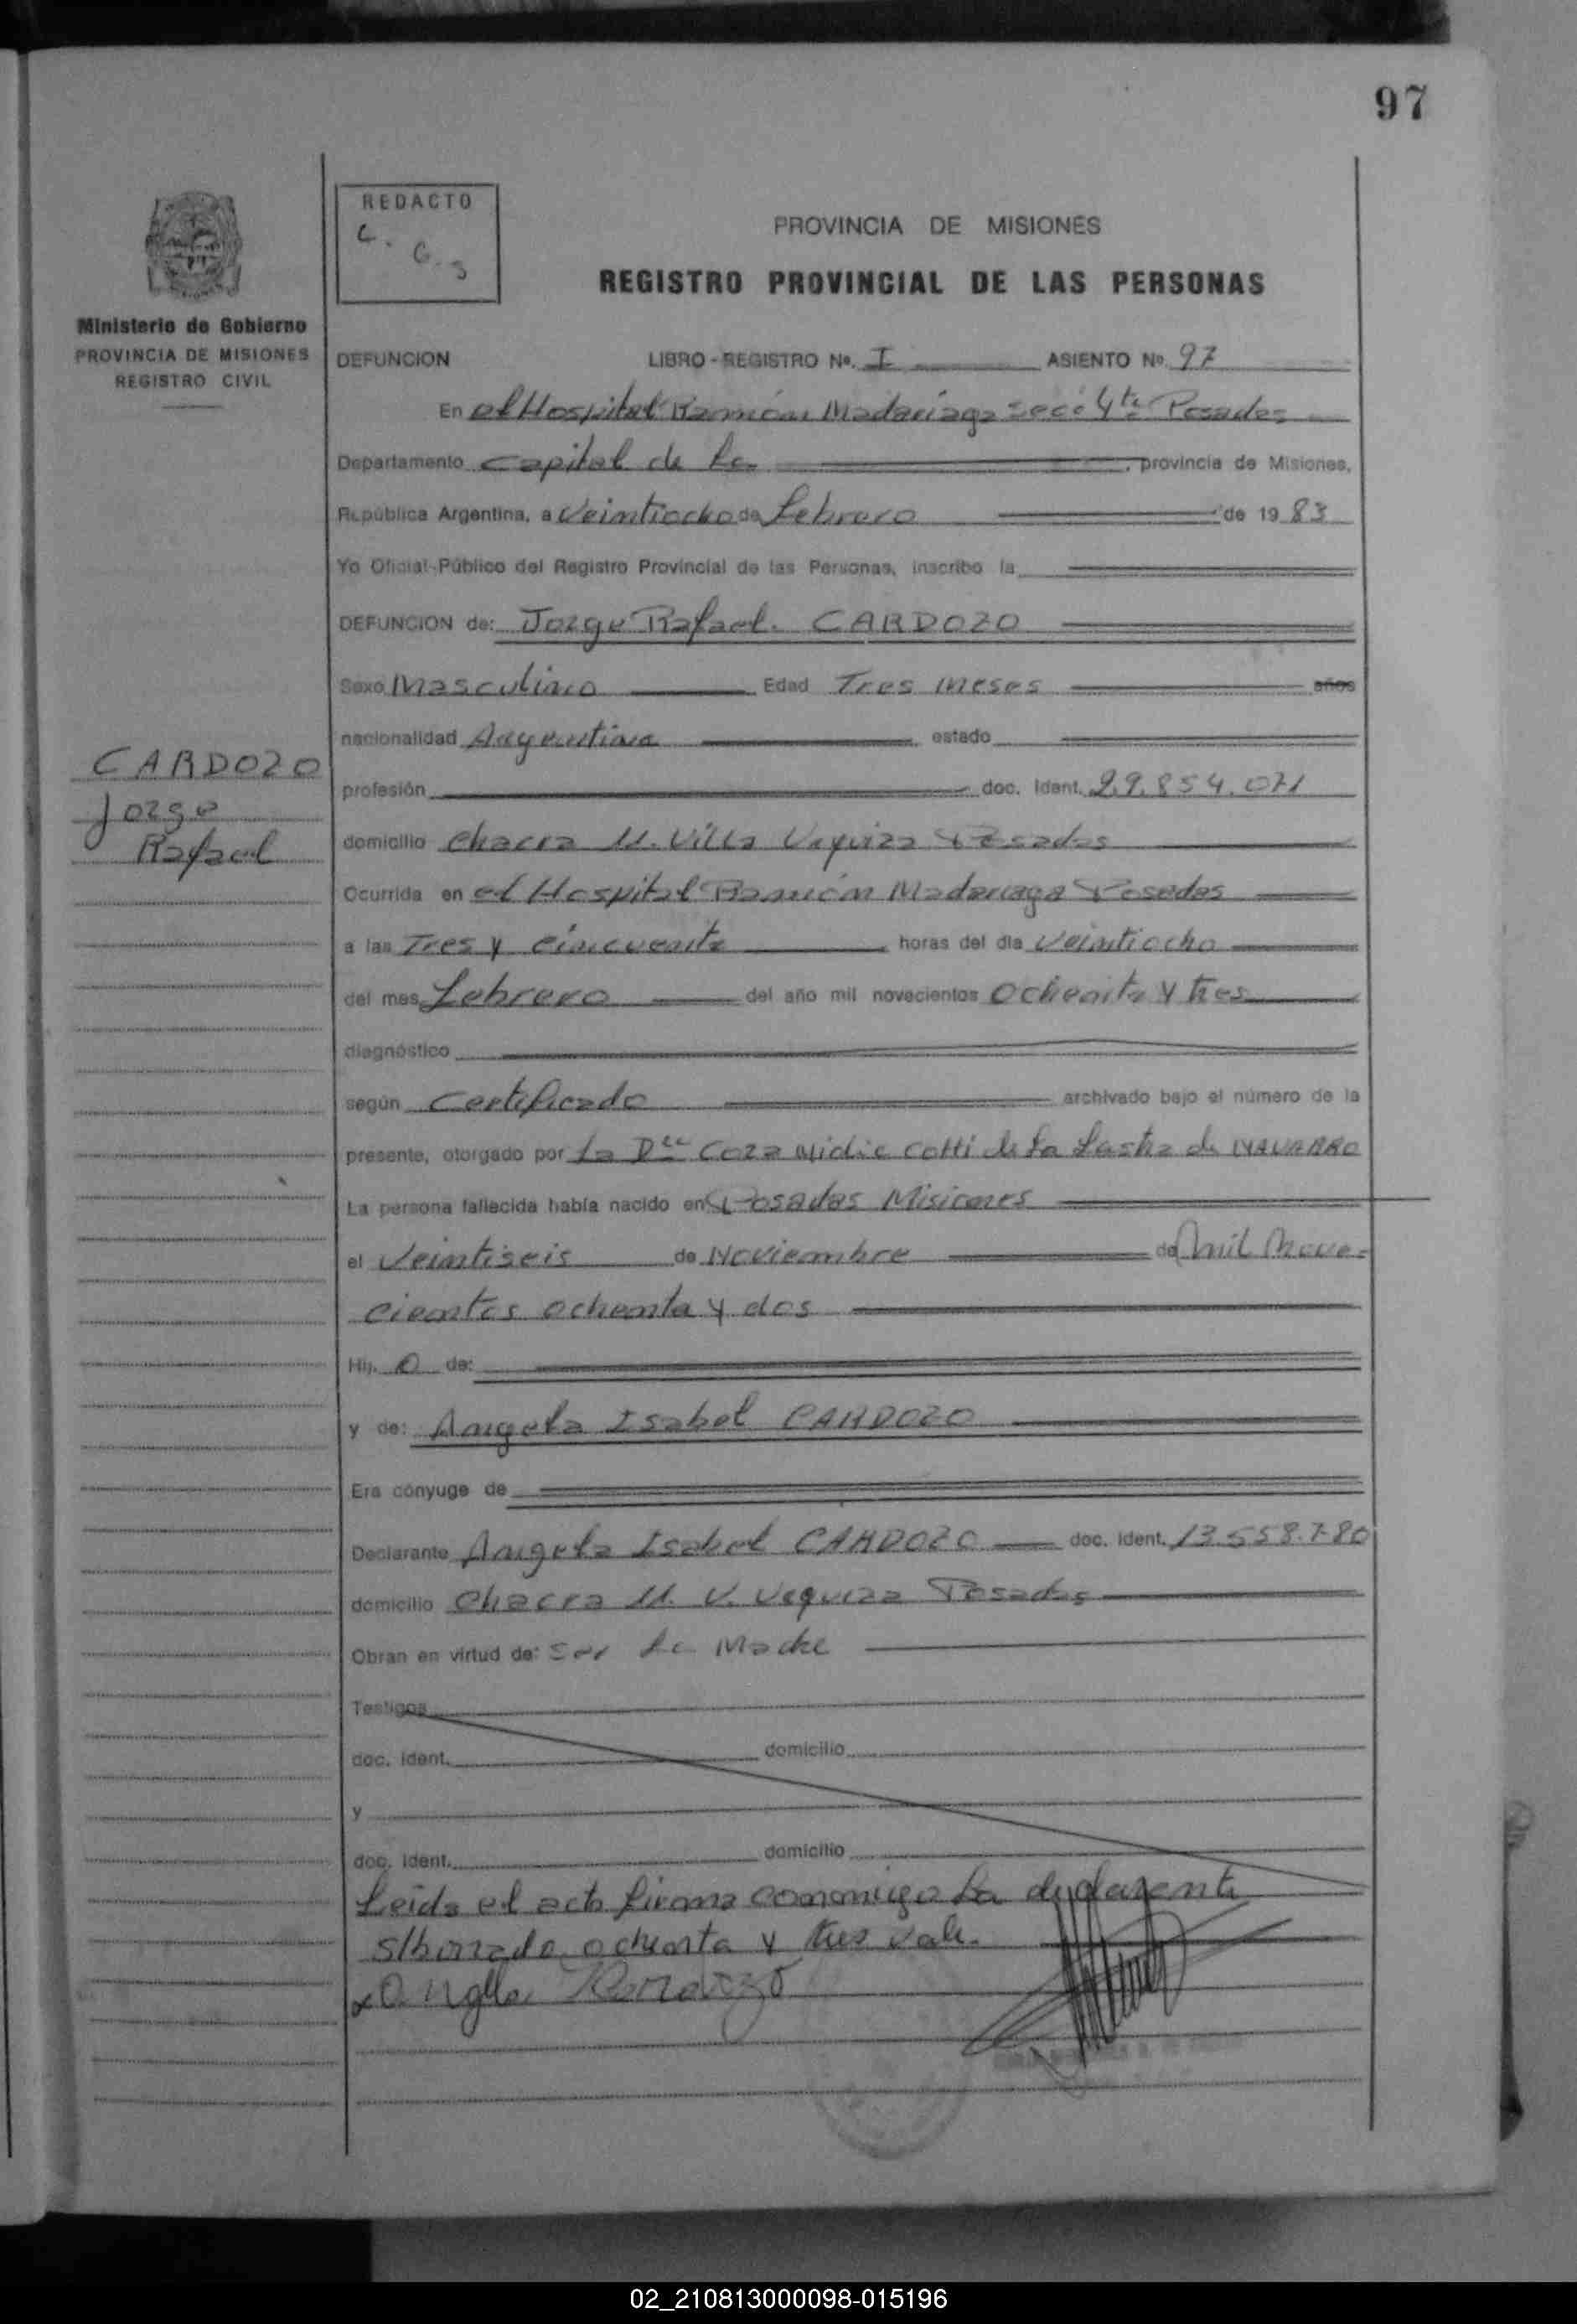 97
REDACTO
C. G. S
PROVINCIA DE MISIONES
REGISTRO PROVINCIAL DE LAS PERSONAS
Ministerio de Gobierno
PROVINCIA DE MISIONES
REGISTRO CIVIL
DEFUNCION LIBRO - REGISTRO Nº. I ASIENTO Nº 97
En el Hospital Ramón Madariaga Secc 4ta Posadas
Departamento Capital de la provincia de Misiones,
República Argentina, a Veintiocho de Febrero de 19 83
Yo Oficial Público del Registro Provincial de las Personas, inscribo la
DEFUNCION de: Jorge Rafael. CARDOZO
Sexo Masculino Edad Tres meses años
nacionalidad Argentina estado
CARDOZO
Jorge
Rafael
profesión doc. ident. 29.854.071
domicilio Chacra 11. Villa Urquiza Posadas
Ocurrida en el Hospital Ramón Madariaga Posadas
a las Tres y cincuenta horas del día veintiocho
del mes Febrero del año mil novecientos ochenta y tres
diagnóstico
según Certificado archivado bajo el número de la
presente, otorgado por la Dra Cotti de la Lastra de NAVARRO
La persona fallecida había nacido en Posadas Misiones
el Veintiseis de Noviembre de mil nove-
cientos ochenta y dos
Hij o de:
y de: Angela Isabel CARDOZO
Era cónyuge de
Declarante Angela Isabel CARDOZO doc. ident. 13.558.780
domicilio Chacra 11. V. Urquiza Posadas
Obran en virtud de: Ser la Madre
Testigos
doc. ident. domicilio
y
doc. ident. domicilio
Leida el acta firma conmigo la declarante
s/borrado ochenta y tres vale.
Angela Cardozo
02_210813000098-015196